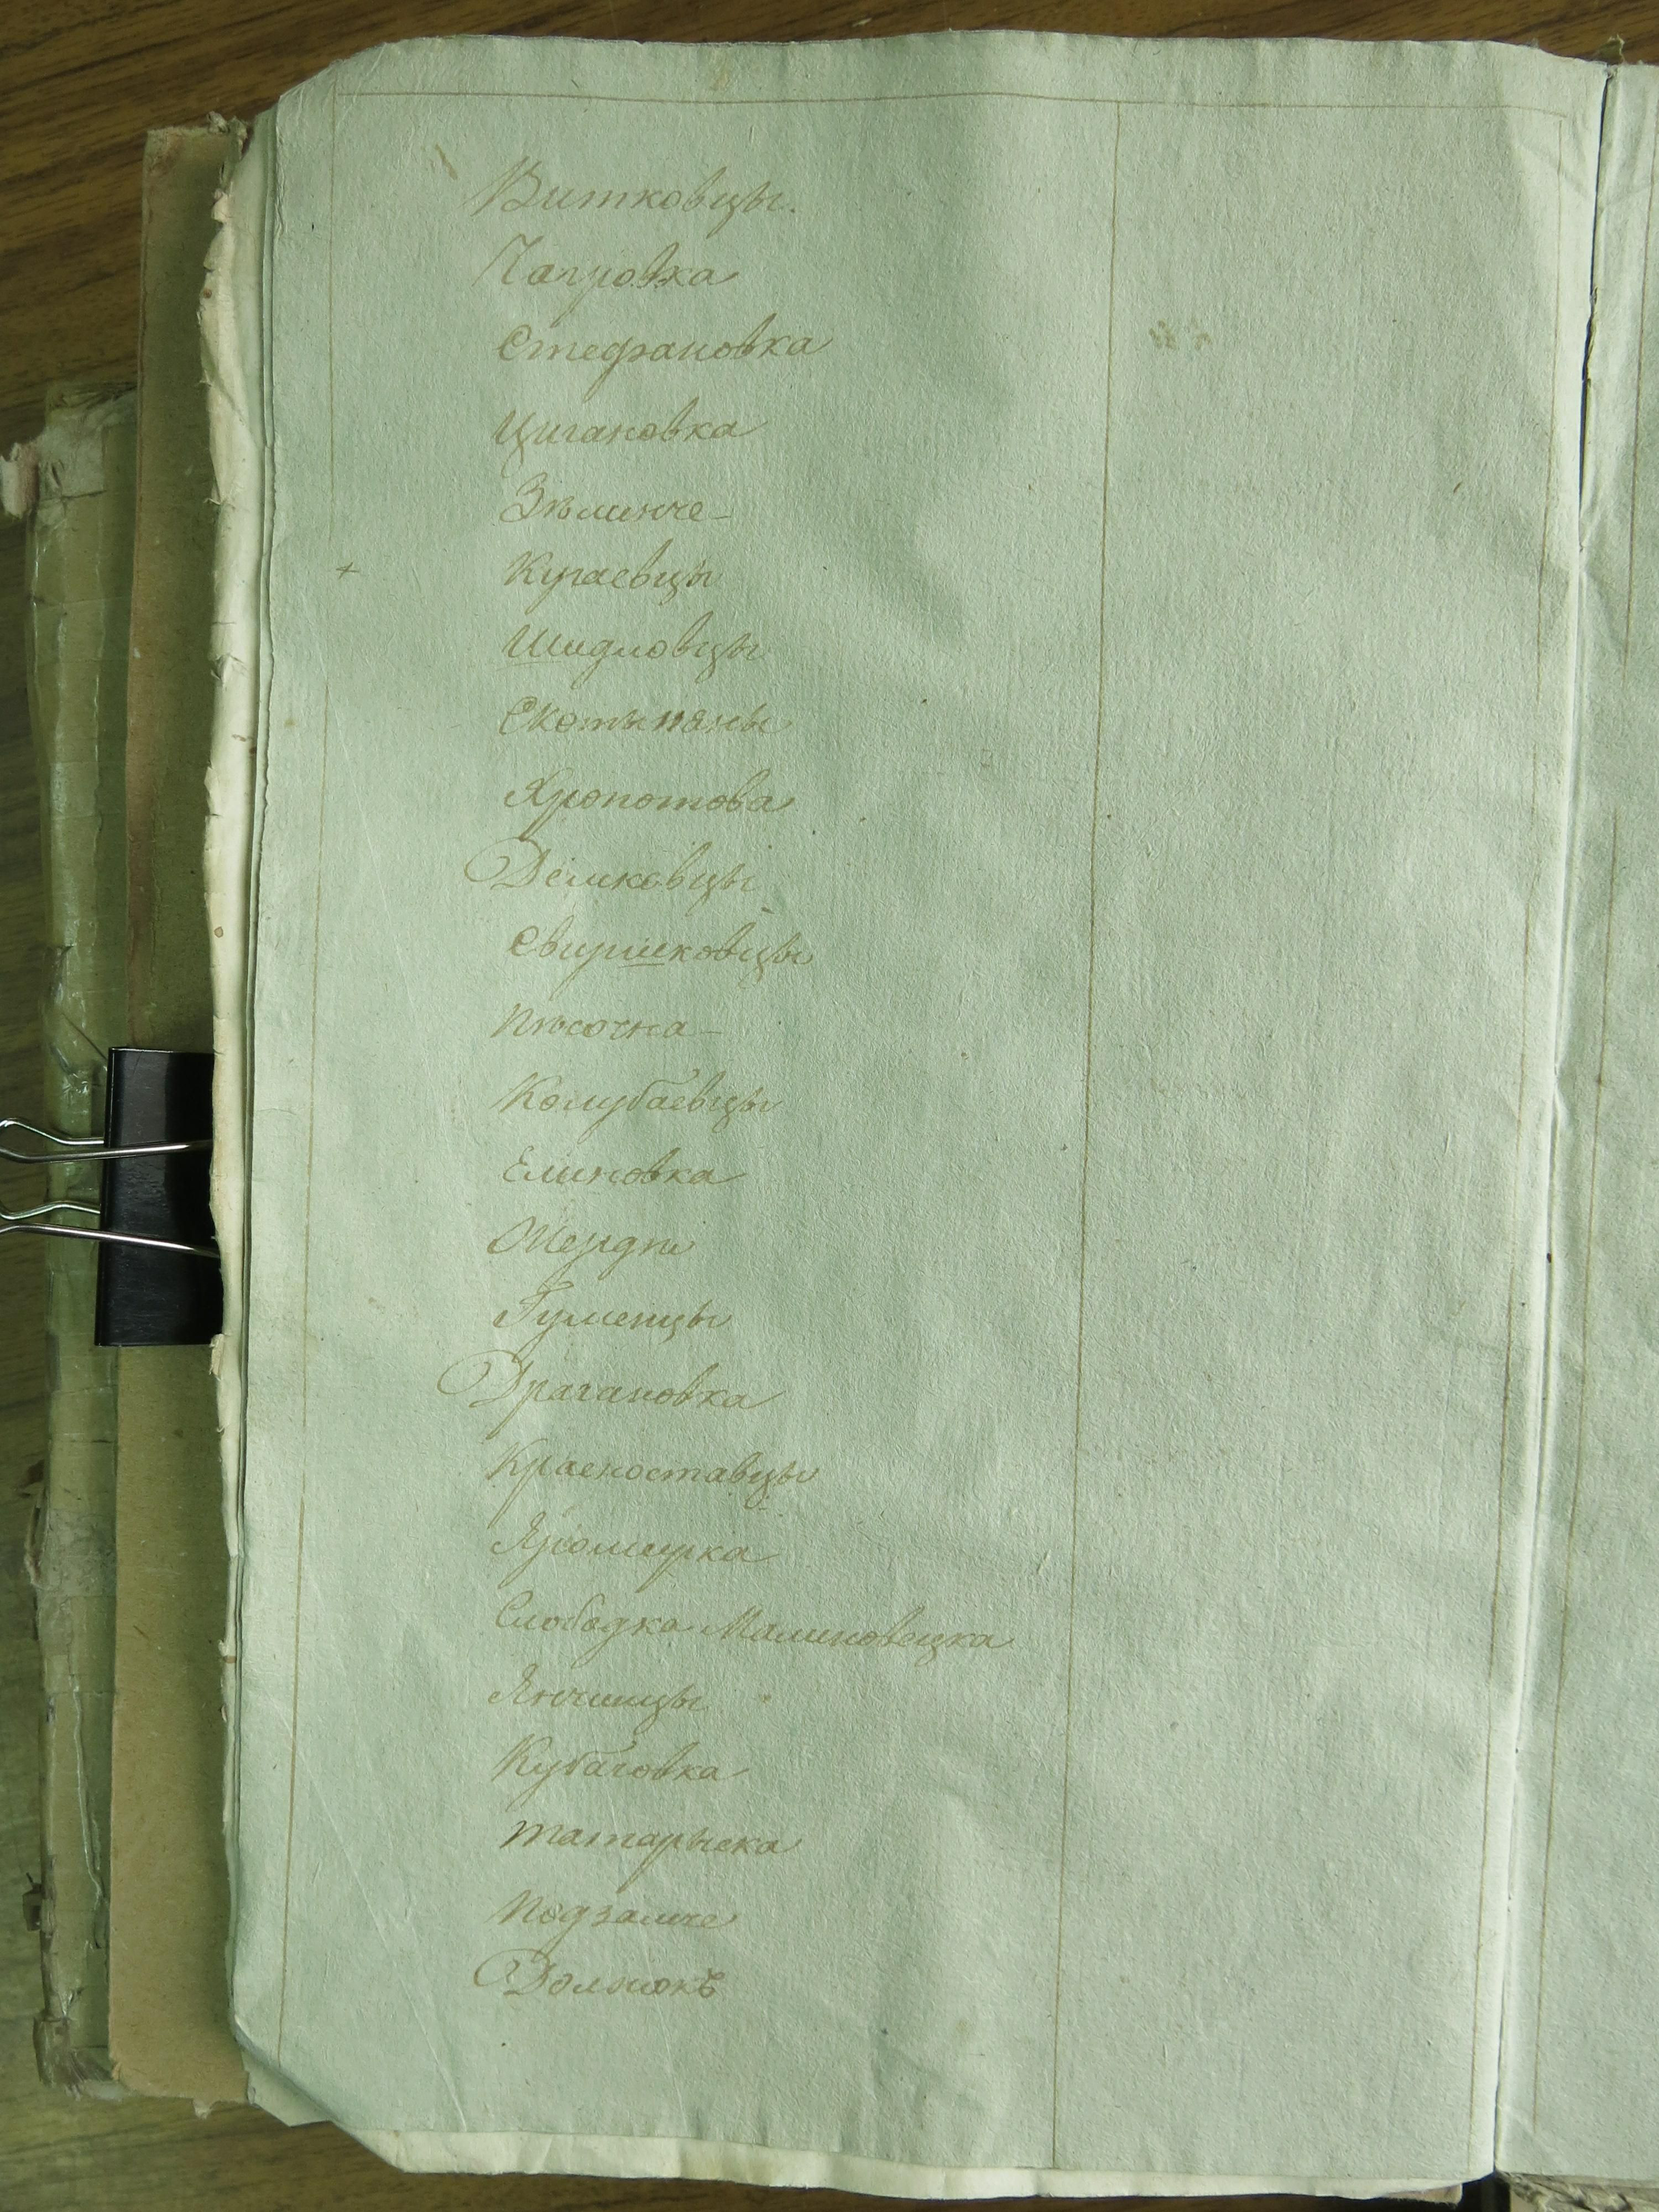 Витковцы.
Чагровка
Стефановка
Цигановка
Зѣлинче
+ Кугаевцы
Шидловцы
Скотыняны
Хропотова
Демковцы
Свиршковцы
Пѣсочна
Колубаевцы
Елиновка
Жердье
Гуменцы
Драгановка
Красноставцы
Яромирка
Слободка Малиновецка
Янчинцы
Кубачовка
Татарыска
Подзамче
Должокъ